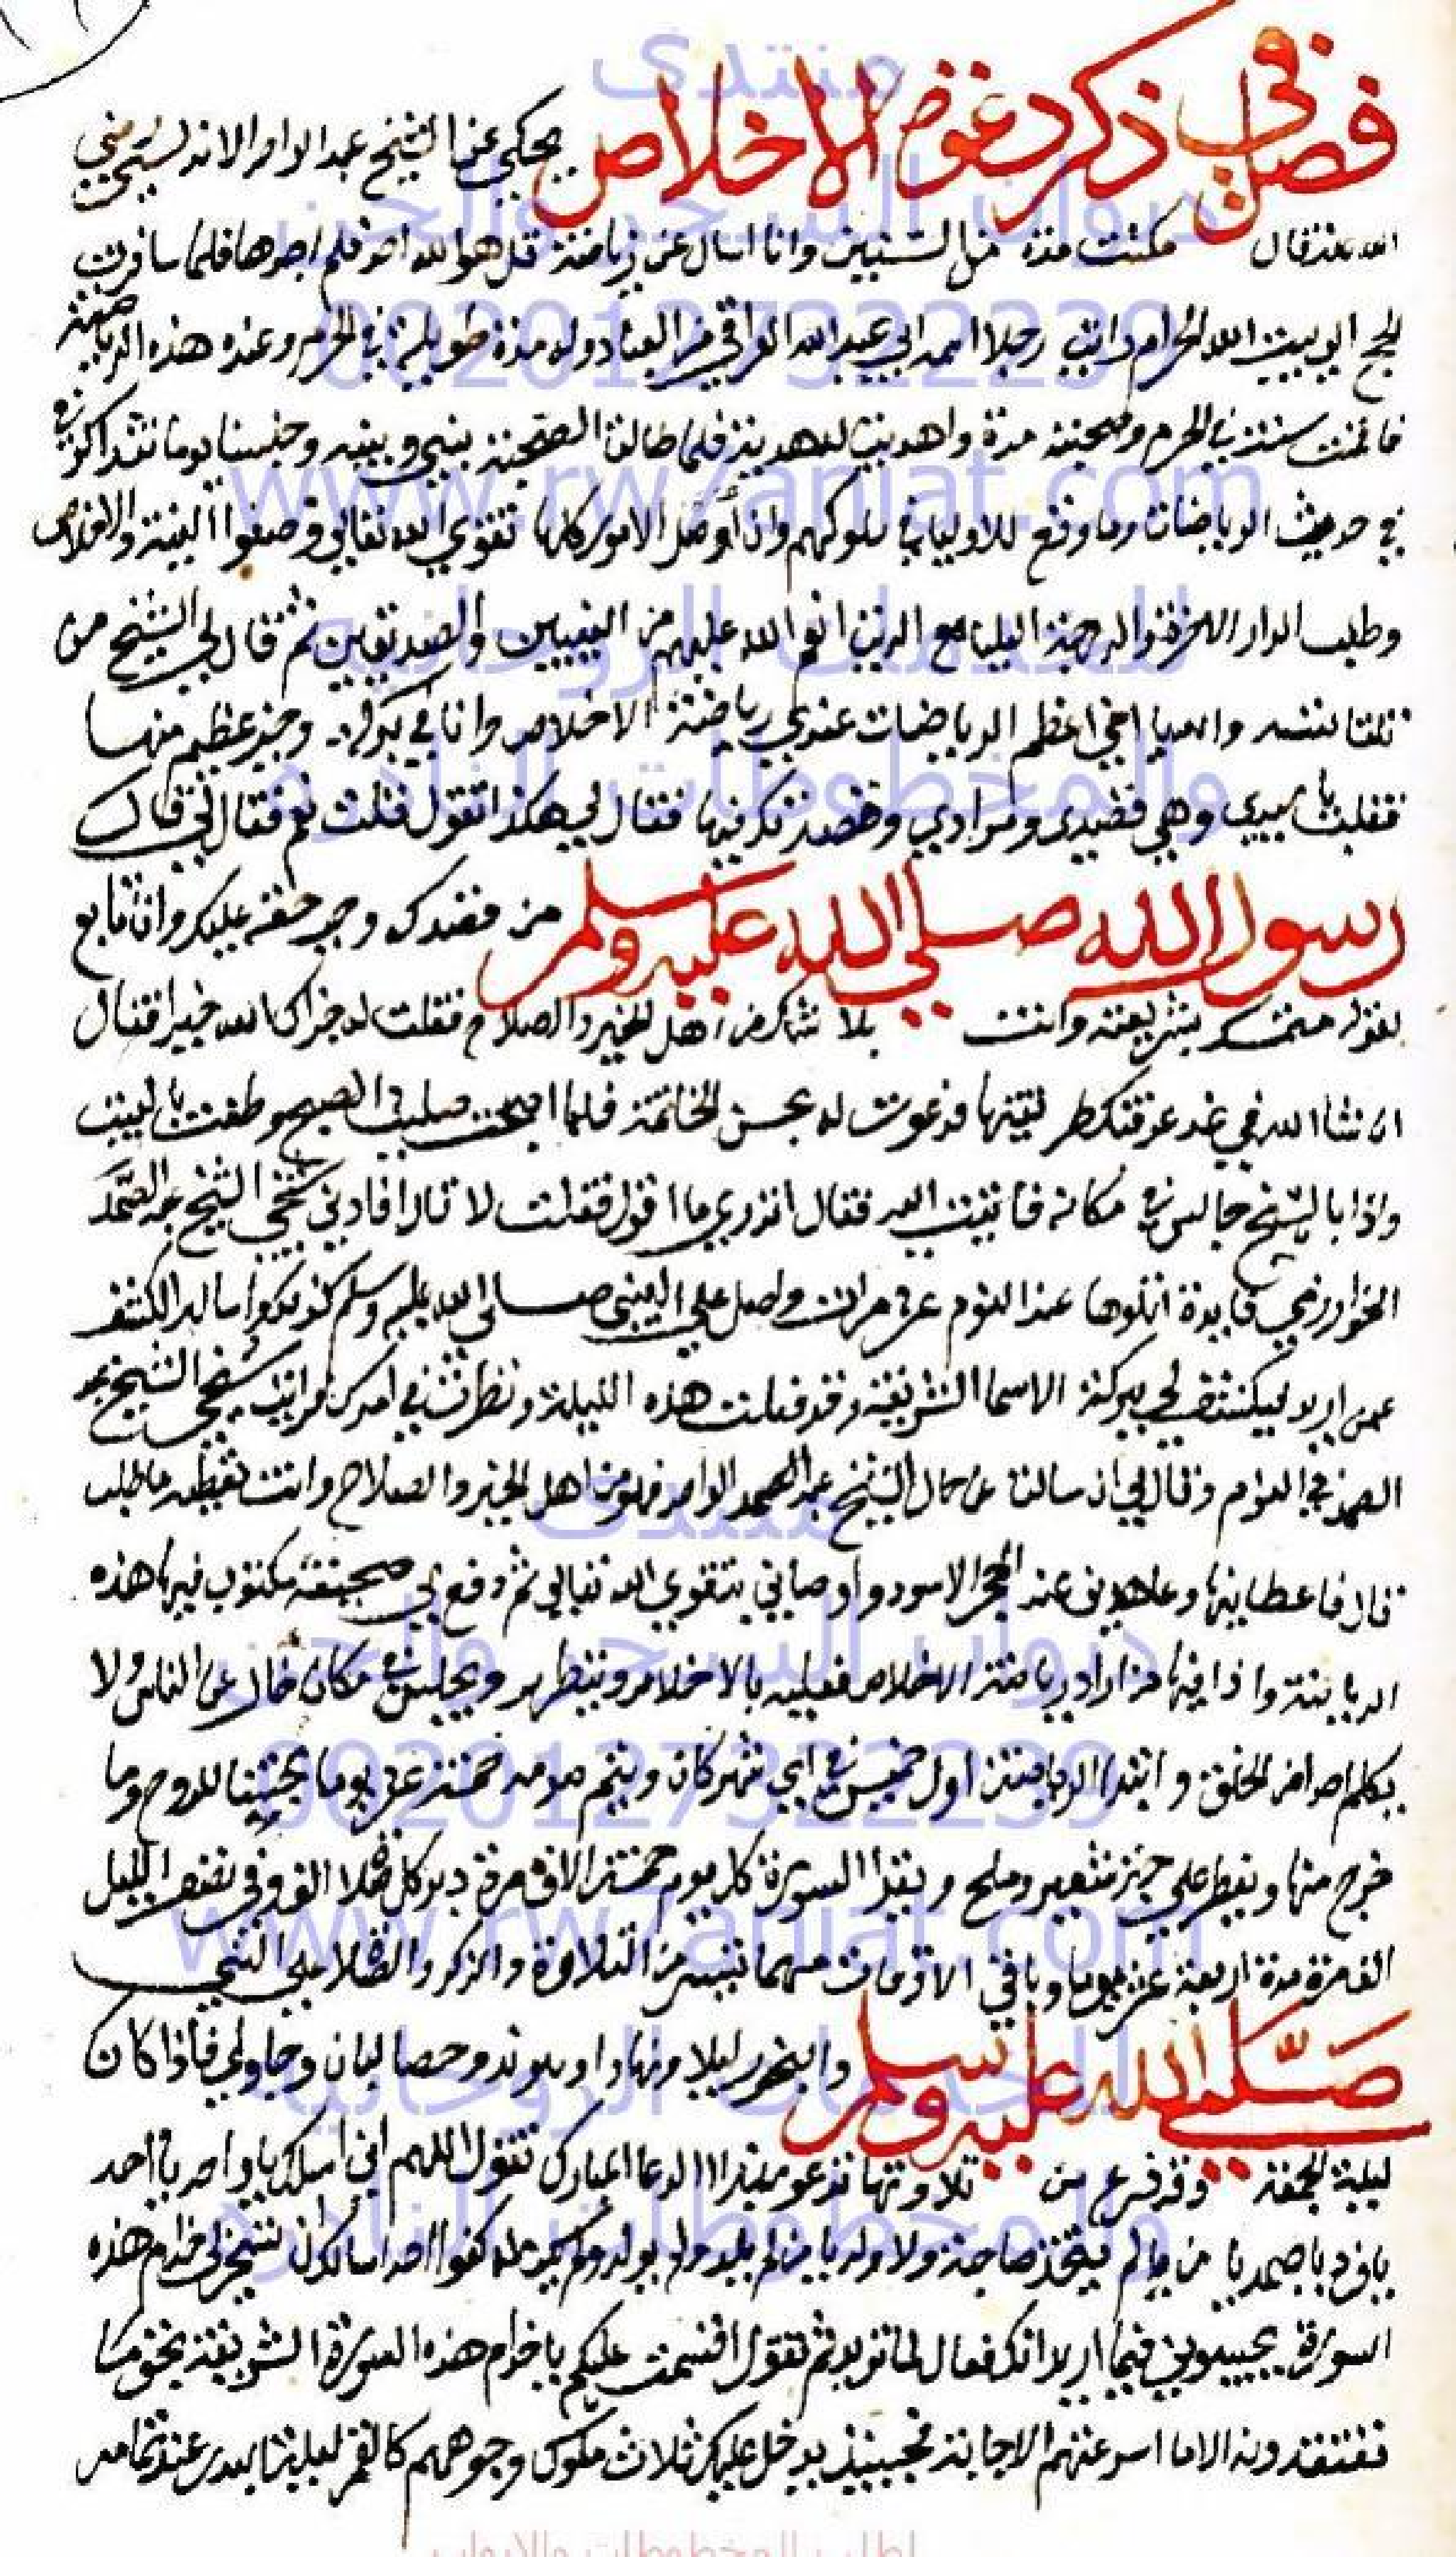 فصل في ذكر دعوة الاخلاص يحكي عن الشيخ عبد الواحد الاندلسي رضي
الله عنه قال مكثت مدة من السنين وانا اسال عن رياضة قل هو الله احد فلم اجدها فلما سافرت
للحج الي بيت الله الحرام رايت رجلا اسمه ابي عبد الله العراقي من العباد وله مدة طويلة في الحرم وعنده هذه الرياضة
فاقمت سنة في الحرم وصحبته مدة واهديت له هدية فلما طالت الصحبة بيني وبينه وجلسنا يوما نتذاكر في
في حديث الرياضات وما وقع للاوليا في سلوكهم وان أوصل الامور كلها تقوي الله تعالي وصفوا النية والاخلاص
وطلب الدار الاخرة والرجعة اليها مع الذين انعم الله عليهم من النبيين والصديقين ثم قال لي الشيخ من
يا اخي اعظم الرياضات عندي رياضة الاخلاص وانا في بركة وخير عظيم منها
فقلت يا سيدي وهي قصدي ومرادي وقصدتك فيها فقال لي هكذا تقول قلت نعم فقال لي قال
رسول الله صلي الله عليه وسلم من قصدك وجب حقه عليك وانا تابع
لقوله متمسك بشريعته وانت بلا شك من اهل الخير والصلاح فقلت له جزاك الله خيرا فقال
ان شا الله في غد فدعوت له بحسن الخاتمة فلما اصبحت صليت الصبح وطفت بالبيت
واذا بالشيخ جالس في مكانه فاتيت اليه فقال اتدري ما اقول فقلت لا قال افادني شيخي الشيخ عبد الصمد
الخوارزمي فايدة اتلوها عند النوم عشر مرات واصل علي النبي صلي الله عليه وسلم كذلك واسال الله الكشف
عمن اريد ليكشف لي ببركة الاسما الشريفة وقد فعلت هذه الليلة ونظرت في امرك فرايت شيخي الشيخ عبد
الصمد في النوم وقال لي ان سالت عن حال الشيخ عبد الواحد فهو من اهل الخير والصلاح وانت تعطيه ما طلب
قال فاعطانيها وعاهدني عند الحجر الاسود واوصاني بتقوي الله تعالي ثم دفع لي صحيفة مكتوب فيها هذه
الرياضة واذا فيها من اراد رياضة الاخلاص فعليه بالاخلاص ويتطهر ويجلس في مكان خال عن الناس ولا
يكلم احد من الخلق وابتدا الرياضة اول خميس في اي شهر كان ويتم صومه خمسة عشر يوما يجتنب الروح وما
خرج منها ويفطر علي خبز شعير وملح ويقرا السورة كل يوم خمسة الاف مرة دبر كل صلاة الف وفي نصف الليل
الف مرة مدة اربعة عشر يوما وباقي الاوقات مهما تيسر من التلاوة والذكر والصلاة علي النبي
صلي الله عليه وسلم والبخور ليلا ونهارا وحصا لبان وجاوي فاذا كان
ليلة الجمعة وقد فرغ من تلاوتها تدعو بهذا الدعا المبارك تقول اللهم اني اسالك يا واحد يا احد
يا فرد يا صمد يا من لم يتخذ صاحبة ولا ولد يا من لم يلد ولم يولد ولم يكن له كفوا احد اسالك ان تسخر لي خدام هذه
السورة يجيبوني فيما اريد انك فعال لما تريد ثم تقول اقسمت عليكم يا خدام هذه السورة الشريفة بحق ما
تعتقدونه الا ما اسرعتم الاجابة فحينئذ يدخل عليك ثلاث ملوك وجوههم كالقمر ليلة